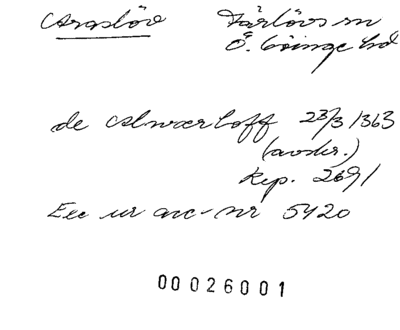 Araslöv Färlövs sn
Ö. Göinge hd
de Alwærloff 23/3 1363
(avskr.)
Rep. 2691
Ecc ur arc-nr 5420
00026001